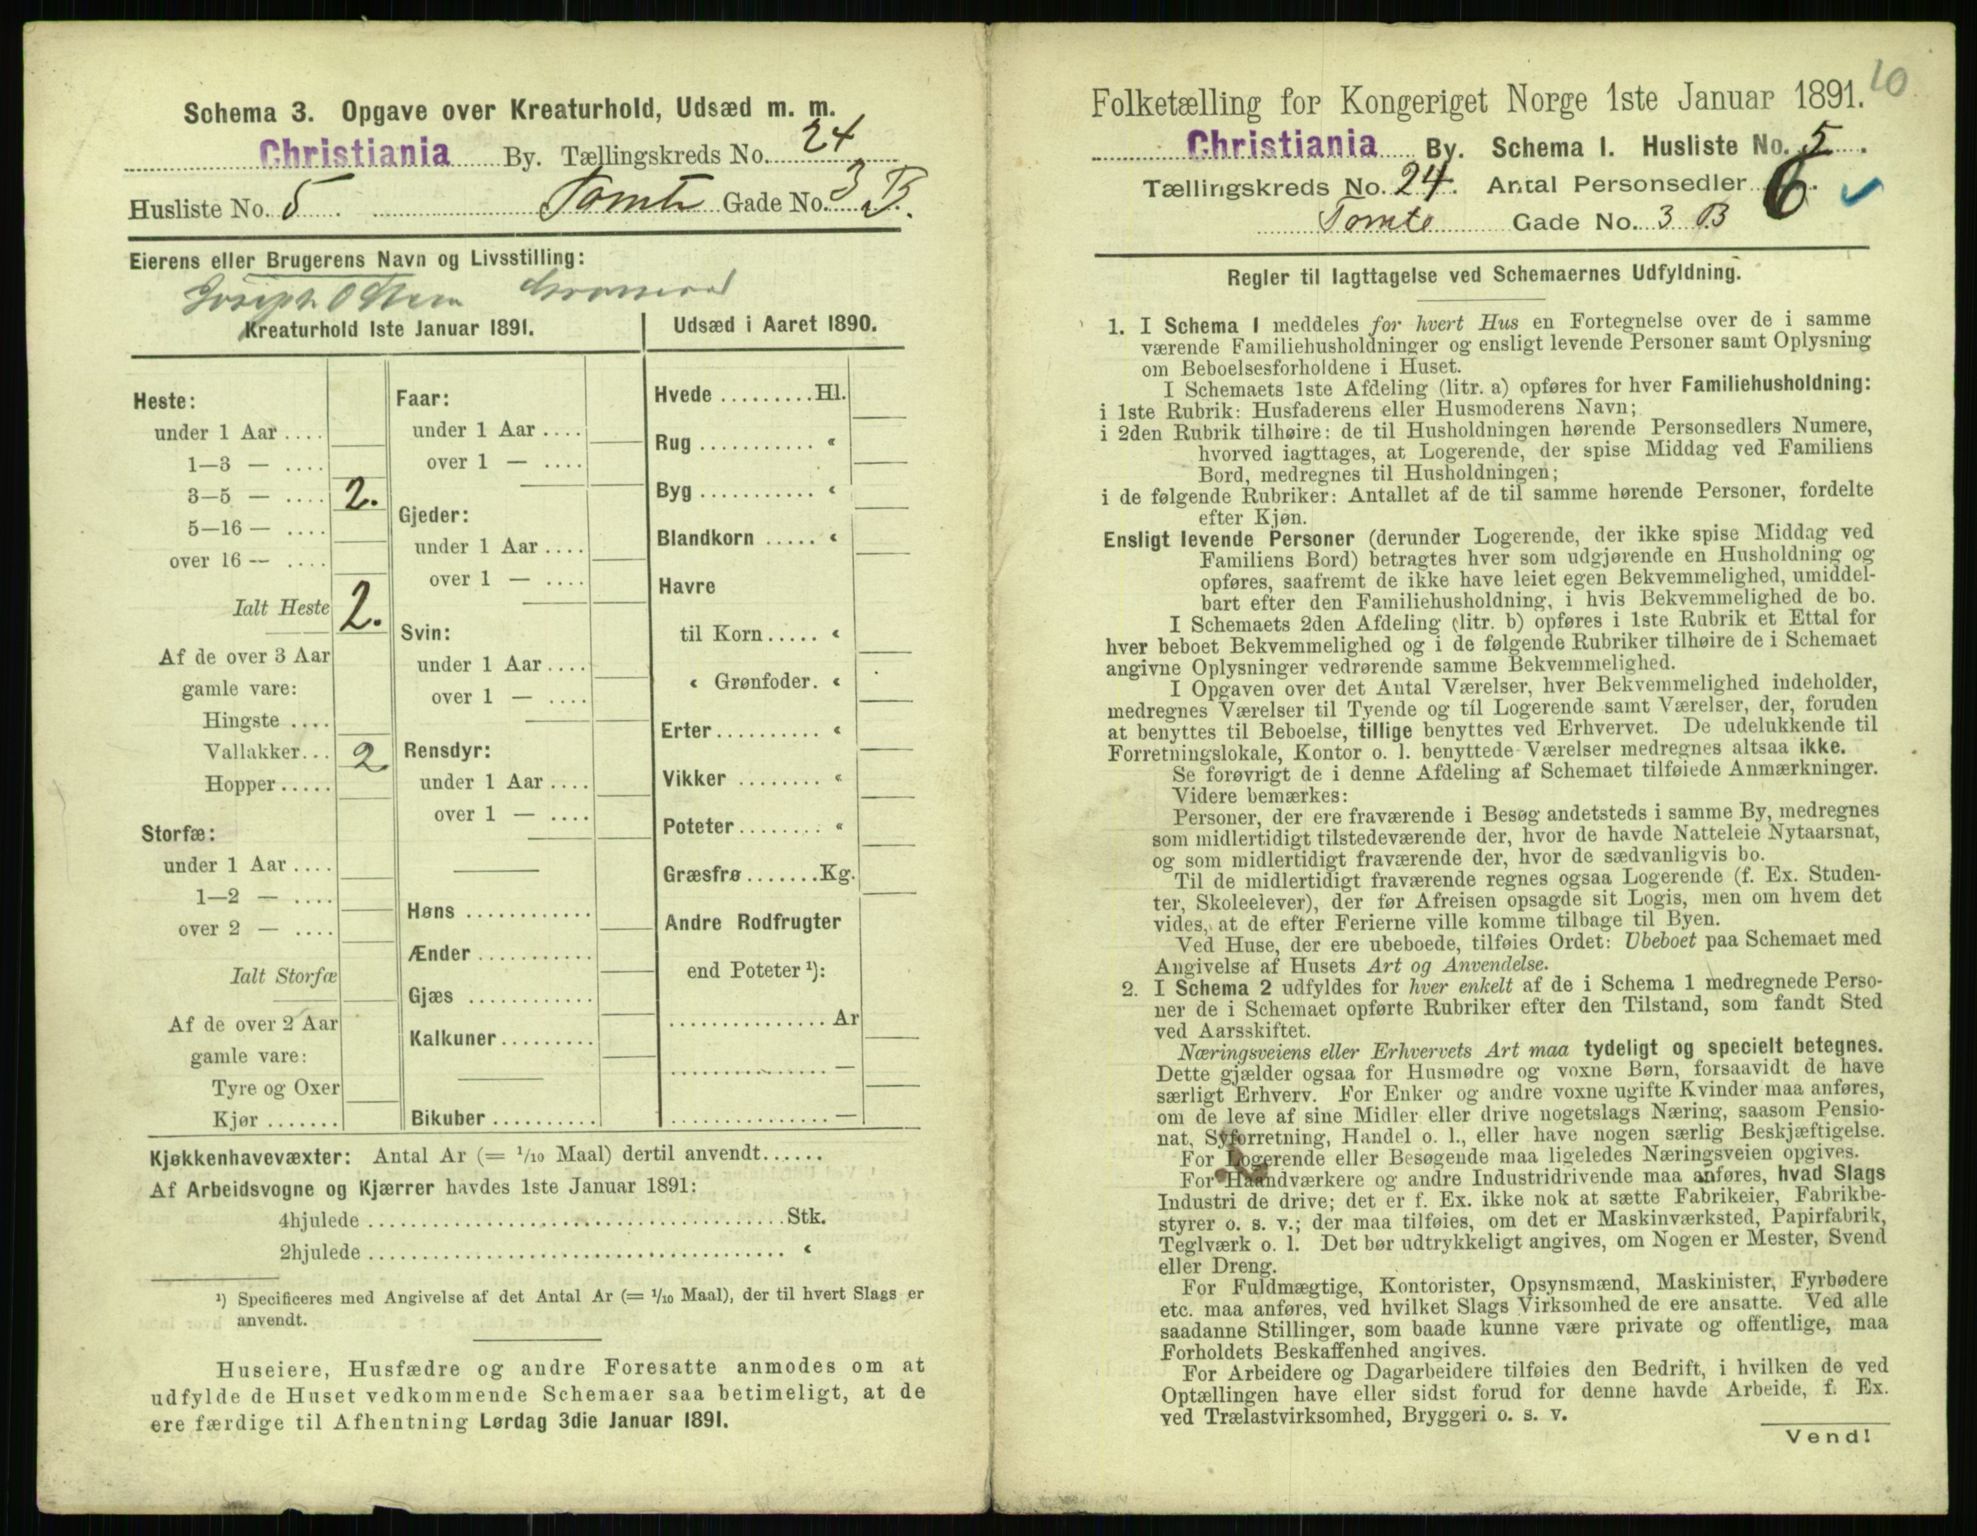 Schema 3. Opgave over Kreaturhold, Udsæd m. m.
Christiania By. Tællingskreds No. 24
Husliste No. 5. Tomte Gade No. 3 B.
Eierens eller Brugerens Navn og Livsstilling:
Joseph Olsen
Kreaturhold 1ste Januar 1891.
Heste:
under 1 Aar ....
1—3 — ....
3—5 — .... 2.
5—16 — ....
over 16 — ....
Ialt Heste 2.
Af de over 3 Aar
gamle vare:
Hingste ....
Vallakker... 2
Hopper.....
Storfæ:
under 1 Aar ....
1—2 — ....
over 2 — ....
Ialt Storfæ
Af de over 2 Aar
gamle vare:
Tyre og Oxer
Kjør .......
Faar:
under 1 Aar ....
over 1 — ....
Gjeder:
under 1 Aar ....
over 1 — ....
Svin:
under 1 Aar ....
over 1 — ....
Rensdyr:
under 1 Aar ....
over 1 — ....
Høns ............
Ænder ...........
Gjæs ............
Kalkuner.........
Bikuber ..........
Udsæd i Aaret 1890.
Hvede .........Hl.
Rug ........... «
Byg ........... «
Blandkorn ..... «
Havre
til Korn..... «
« Grønfoder. «
Erter.......... «
Vikker ........ «
Poteter........ «
Græsfrø.......Kg.
Andre Rodfrugter
end Poteter ¹):
............... Ar
............... —
............... —
Kjøkkenhavevæxter: Antal Ar (= 1/10 Maal) dertil anvendt......
Af Arbeidsvogne og Kjærrer havdes 1ste Januar 1891:
4hjulede ........................................Stk.
2hjulede ........................................ «
¹) Specificeres med Angivelse af det Antal Ar (= 1/10 Maal), der til hvert Slags er
anvendt.
Huseiere, Husfædre og andre Foresatte anmodes om at
udfylde de Huset vedkommende Schemaer saa betimeligt, at de
ere færdige til Afhentning Lørdag 3die Januar 1891.
10
Folketælling for Kongeriget Norge 1ste Januar 1891.
Christiania By. Schema I. Husliste No. 5.
Tællingskreds No. 24. Antal Personsedler 6.
Tomte Gade No. 3 B
Regler til Iagttagelse ved Schemaernes Udfyldning.
1. I Schema 1 meddeles for hvert Hus en Fortegnelse over de i samme
værende Familiehusholdninger og ensligt levende Personer samt Oplysning
om Beboelsesforholdene i Huset.
I Schemaets 1ste Afdeling (litr. a) opføres for hver Familiehusholdning:
i 1ste Rubrik: Husfaderens eller Husmoderens Navn;
i 2den Rubrik tilhøire: de til Husholdningen hørende Personsedlers Numere,
hvorved iagttages, at Logerende, der spise Middag ved Familiens
Bord, medregnes til Husholdningen;
i de følgende Rubriker: Antallet af de til samme hørende Personer, fordelte
efter Kjøn.
Ensligt levende Personer (derunder Logerende, der ikke spise Middag ved
Familiens Bord) betragtes hver som udgjørende en Husholdning og
opføres, saafremt de ikke have leiet egen Bekvemmelighed, umiddel-
bart efter den Familiehusholdning, i hvis Bekvemmelighed de bo.
I Schemaets 2den Afdeling (litr. b) opføres i 1ste Rubrik et Ettal for
hver beboet Bekvemmelighed og i de følgende Rubriker tilhøire de i Schemaet
angivne Oplysninger vedrørende samme Bekvemmelighed.
I Opgaven over det Antal Værelser, hver Bekvemmelighed indeholder,
medregnes Værelser til Tyende og til Logerende samt Værelser, der, foruden
at benyttes til Beboelse, tillige benyttes ved Erhvervet. De udelukkende til
Forretningslokale, Kontor o. l. benyttede Værelser medregnes altsaa ikke.
Se forøvrigt de i denne Afdeling af Schemaet tilføiede Anmærkninger.
Videre bemærkes:
Personer, der ere fraværende i Besøg andetsteds i samme By, medregnes
som midlertidigt tilstedeværende der, hvor de havde Natteleie Nytaarsnat,
og som midlertidigt fraværende der, hvor de sædvanligvis bo.
Til de midlertidigt fraværende regnes ogsaa Logerende (f. Ex. Studen-
ter, Skoleelever), der før Afreisen opsagde sit Logis, men om hvem det
vides, at de efter Ferierne ville komme tilbage til Byen.
Ved Huse, der ere ubeboede, tilføies Ordet: Ubeboet paa Schemaet med
Angivelse af Husets Art og Anvendelse.
2. I Schema 2 udfyldes for hver enkelt af de i Schema 1 medregnede Perso-
ner de i Schemaet opførte Rubriker efter den Tilstand, som fandt Sted
ved Aarsskiftet.
Næringsveiens eller Erhvervets Art maa tydeligt og specielt betegnes.
Dette gjælder ogsaa for Husmødre og voxne Børn, forsaavidt de have
særligt Erhverv. For Enker og andre voxne ugifte Kvinder maa anføres,
om de leve af sine Midler eller drive nogetslags Næring, saasom Pensio-
nat, Syforretning, Handel o. l., eller have nogen særlig Beskjæftigelse.
For Logerende eller Besøgende maa ligeledes Næringsveien opgives.
For Haandværkere og andre Industridrivende maa anføres, hvad Slags
Industri de drive; det er f. Ex. ikke nok at sætte Fabrikeier, Fabrikbe-
styrer o. s. v.; der maa tilføies, om det er Maskinværksted, Papirfabrik,
Teglværk o. l. Det bør udtrykkeligt angives, om Nogen er Mester, Svend
eller Dreng.
For Fuldmægtige, Kontorister, Opsynsmænd, Maskinister, Fyrbødere
etc. maa anføres, ved hvilket Slags Virksomhed de ere ansatte. Ved alle
saadanne Stillinger, som baade kunne være private og offentlige, maa
Forholdets Beskaffenhed angives.
For Arbeidere og Dagarbeidere tilføies den Bedrift, i hvilken de ved
Optællingen have eller sidst forud for denne havde Arbeide, f. Ex.
ved Trælastvirksomhed, Bryggeri o. s. v.
Vend!